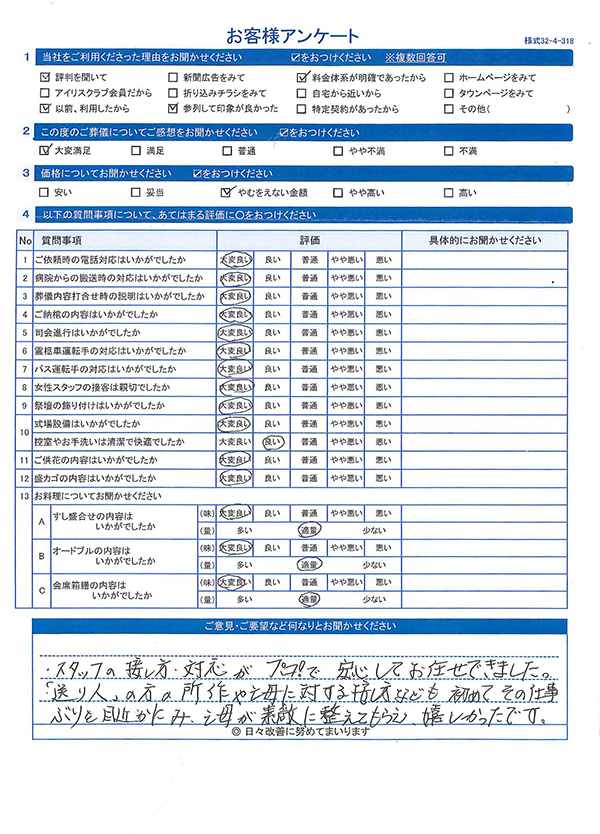 お客様アンケート
様式32-4-318
1 当社をご利用くださった理由をお聞かせください ☑をおつけください ※複数回答可
☑ 評判を聞いて □ 新聞広告をみて ☑ 料金体系が明確であったから □ ホームページをみて
□ アイリスクラブ会員だから □ 折り込みチラシをみて □ 自宅から近いから □ タウンページをみて
☑ 以前、利用したから ☑ 参列して印象が良かった □ 特定契約があったから □ その他( )
2 この度のご葬儀についてご感想をお聞かせください ☑をおつけください
☑ 大変満足 □ 満足 □ 普通 □ やや不満 □ 不満
3 価格についてお聞かせください ☑をおつけください
□ 安い □ 妥当 ☑ やむをえない金額 □ やや高い □ 高い
4 以下の質問事項について、あてはまる評価に○をおつけください
No 質問事項 評価 具体的にお聞かせください
1 ご依頼時の電話対応はいかがでしたか 大変良い 良い 普通 やや悪い 悪い
2 病院からの搬送時の対応はいかがでしたか 大変良い 良い 普通 やや悪い 悪い
3 葬儀内容打合せ時の説明はいかがでしたか 大変良い 良い 普通 やや悪い 悪い
4 ご納棺の内容はいかがでしたか 大変良い 良い 普通 やや悪い 悪い
5 司会進行はいかがでしたか 大変良い 良い 普通 やや悪い 悪い
6 霊柩車運転手の対応はいかがでしたか 大変良い 良い 普通 やや悪い 悪い
7 バス運転手の対応はいかがでしたか 大変良い 良い 普通 やや悪い 悪い
8 女性スタッフの接客は親切でしたか 大変良い 良い 普通 やや悪い 悪い
9 祭壇の飾り付けはいかがでしたか 大変良い 良い 普通 やや悪い 悪い
10 式場設備はいかがでしたか 大変良い 良い 普通 やや悪い 悪い
控室やお手洗いは清潔で快適でしたか 大変良い 良い 普通 やや悪い 悪い
11 ご供花の内容はいかがでしたか 大変良い 良い 普通 やや悪い 悪い
12 盛カゴの内容はいかがでしたか 大変良い 良い 普通 やや悪い 悪い
13 お料理についてお聞かせください
A すし盛合せの内容は (味) 大変良い 良い 普通 やや悪い 悪い
いかがでしたか (量) 多い 適量 少ない
B オードブルの内容は (味) 大変良い 良い 普通 やや悪い 悪い
いかがでしたか (量) 多い 適量 少ない
C 会席箱膳の内容は (味) 大変良い 良い 普通 やや悪い 悪い
いかがでしたか (量) 多い 適量 少ない
ご意見・ご要望など何なりとお聞かせください
・スタッフの接し方・対応がプロ!で安心してお任せできました。
「送り人」の方の所作や母に対する接し方なども初めてその仕事
ぶりを目近かにみ、母が素敵に整えてもらい嬉しかったです。
◎ 日々改善に努めてまいります